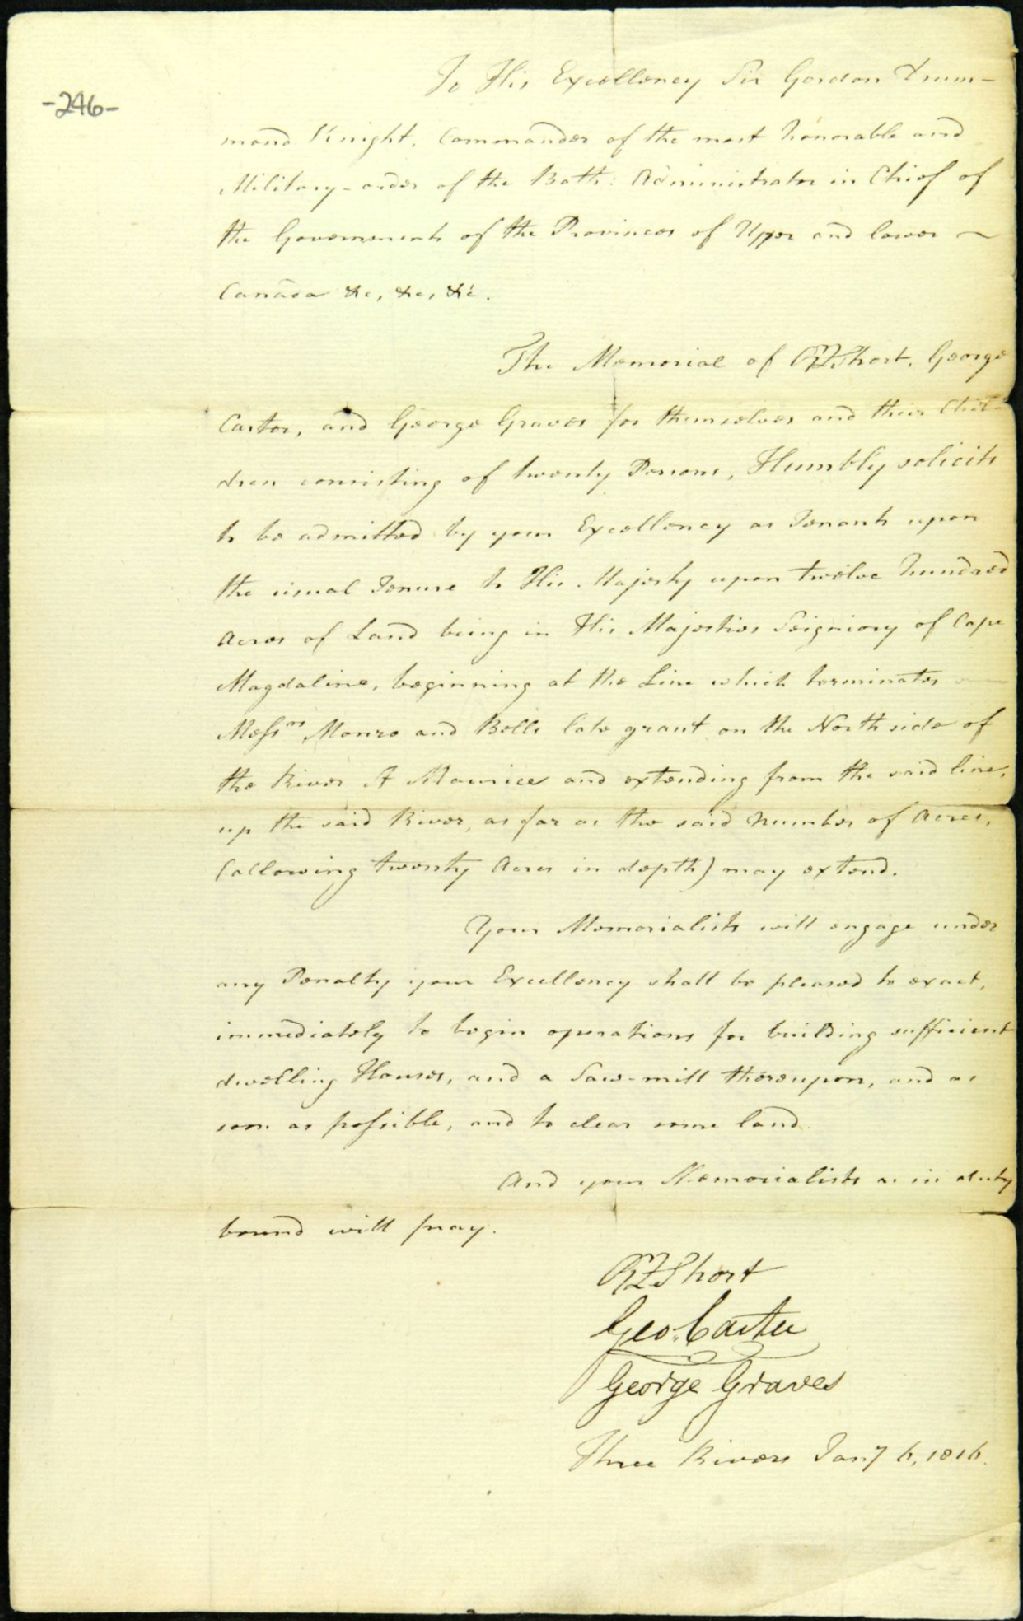 -246-
To His Excellency Sir Gordon Drum-
mond Knight, Commander of the most honorable and
Military-order of the Bath: Administrator in Chief of
the Governments of the Provinces of Upper and lower
Canada &c, &c, &c.
The Memorial of RQShort, George
Carter, and George Graves for themselves and their Chil-
dren consisting of twenty Persons, Humbly solicits
to be admitted by your Excellency as Tenants upon
the usual Tenure to His Majesty upon twelve hundred
Acres of Land being in His Majesties Seigniory of Cape
Magdaline, beginning at the Line which terminates
Messrs Monro and Bells late grant on the North side of
the River St Maurice and extending from the said line,
up the said River, as far as the said number of Acres,
(allowing twenty Acres in depth) may extend.
Your Memorialists will engage under
any Penalty your Excellency shall be pleased to exact,
immediately to begin operations for building sufficient
dwelling Houses, and a Saw-mill thereupon, and as
soon as possible, and to clear some land
And your Memorialists as in duty
bound will pray.
Short
Geo. Carter
George Graves
Three Rivers Jany 6, 1816.